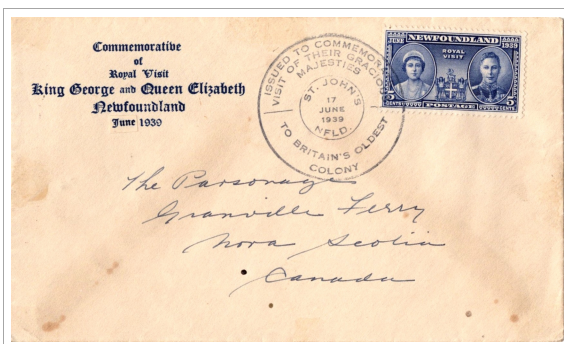 Commemorative
of
Royal Visit
King George and Queen Elizabeth
Newfoundland
June 1939
ISSUED TO COMMEMOR
VISIT OF THEIR GRACIO
MAJESTIES
ST. JOHN'S
17
JUNE
1939
NFLD.
TO BRITAIN'S OLDEST
COLONY
JUNE NEWFOUNDLAND 1939
ROYAL
VISIT
5 CENTS POSTAGE 5 CENTS
The Parsonage
Granville Ferry
Nova Scotia
Canada